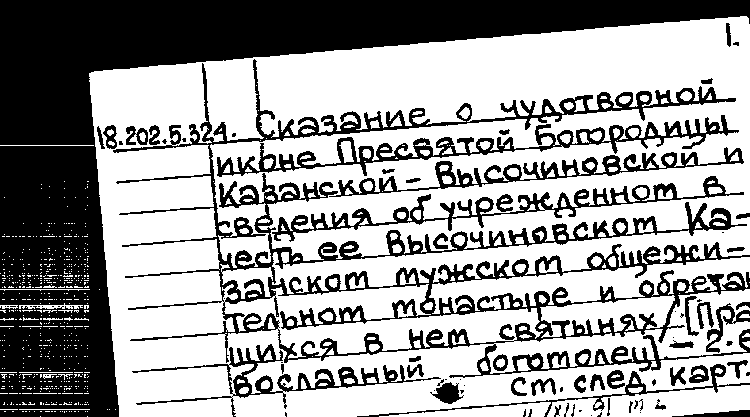 1.
18.202.5.324. Сказание о чудотворной
иконе Пресвятой Богородицы
Казанской - Высочиновской и
сведения об учрежденном в
честь ее Высочиновском Ка-
занском мужском общежи-
тельном монастыре и обретаю
щихся в нем святынях/[Пра
вославный богомолец] - 2-е
см. след. карт.